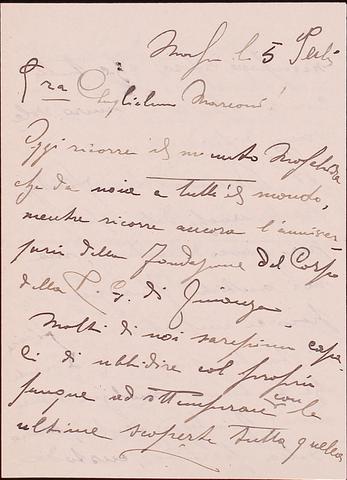 li 5
Guglielmo Marconi!
Oggi ricorre il
che da noia a tutto il mondo,
mentre ricorre ancora l'anniver
saria della Fondazione del Corpo
della R. G. di Finanza
Molti di noi sarebbero capa
ci di ubbidire col proprio
sangue ad con le
ultime scoperte tutta quella